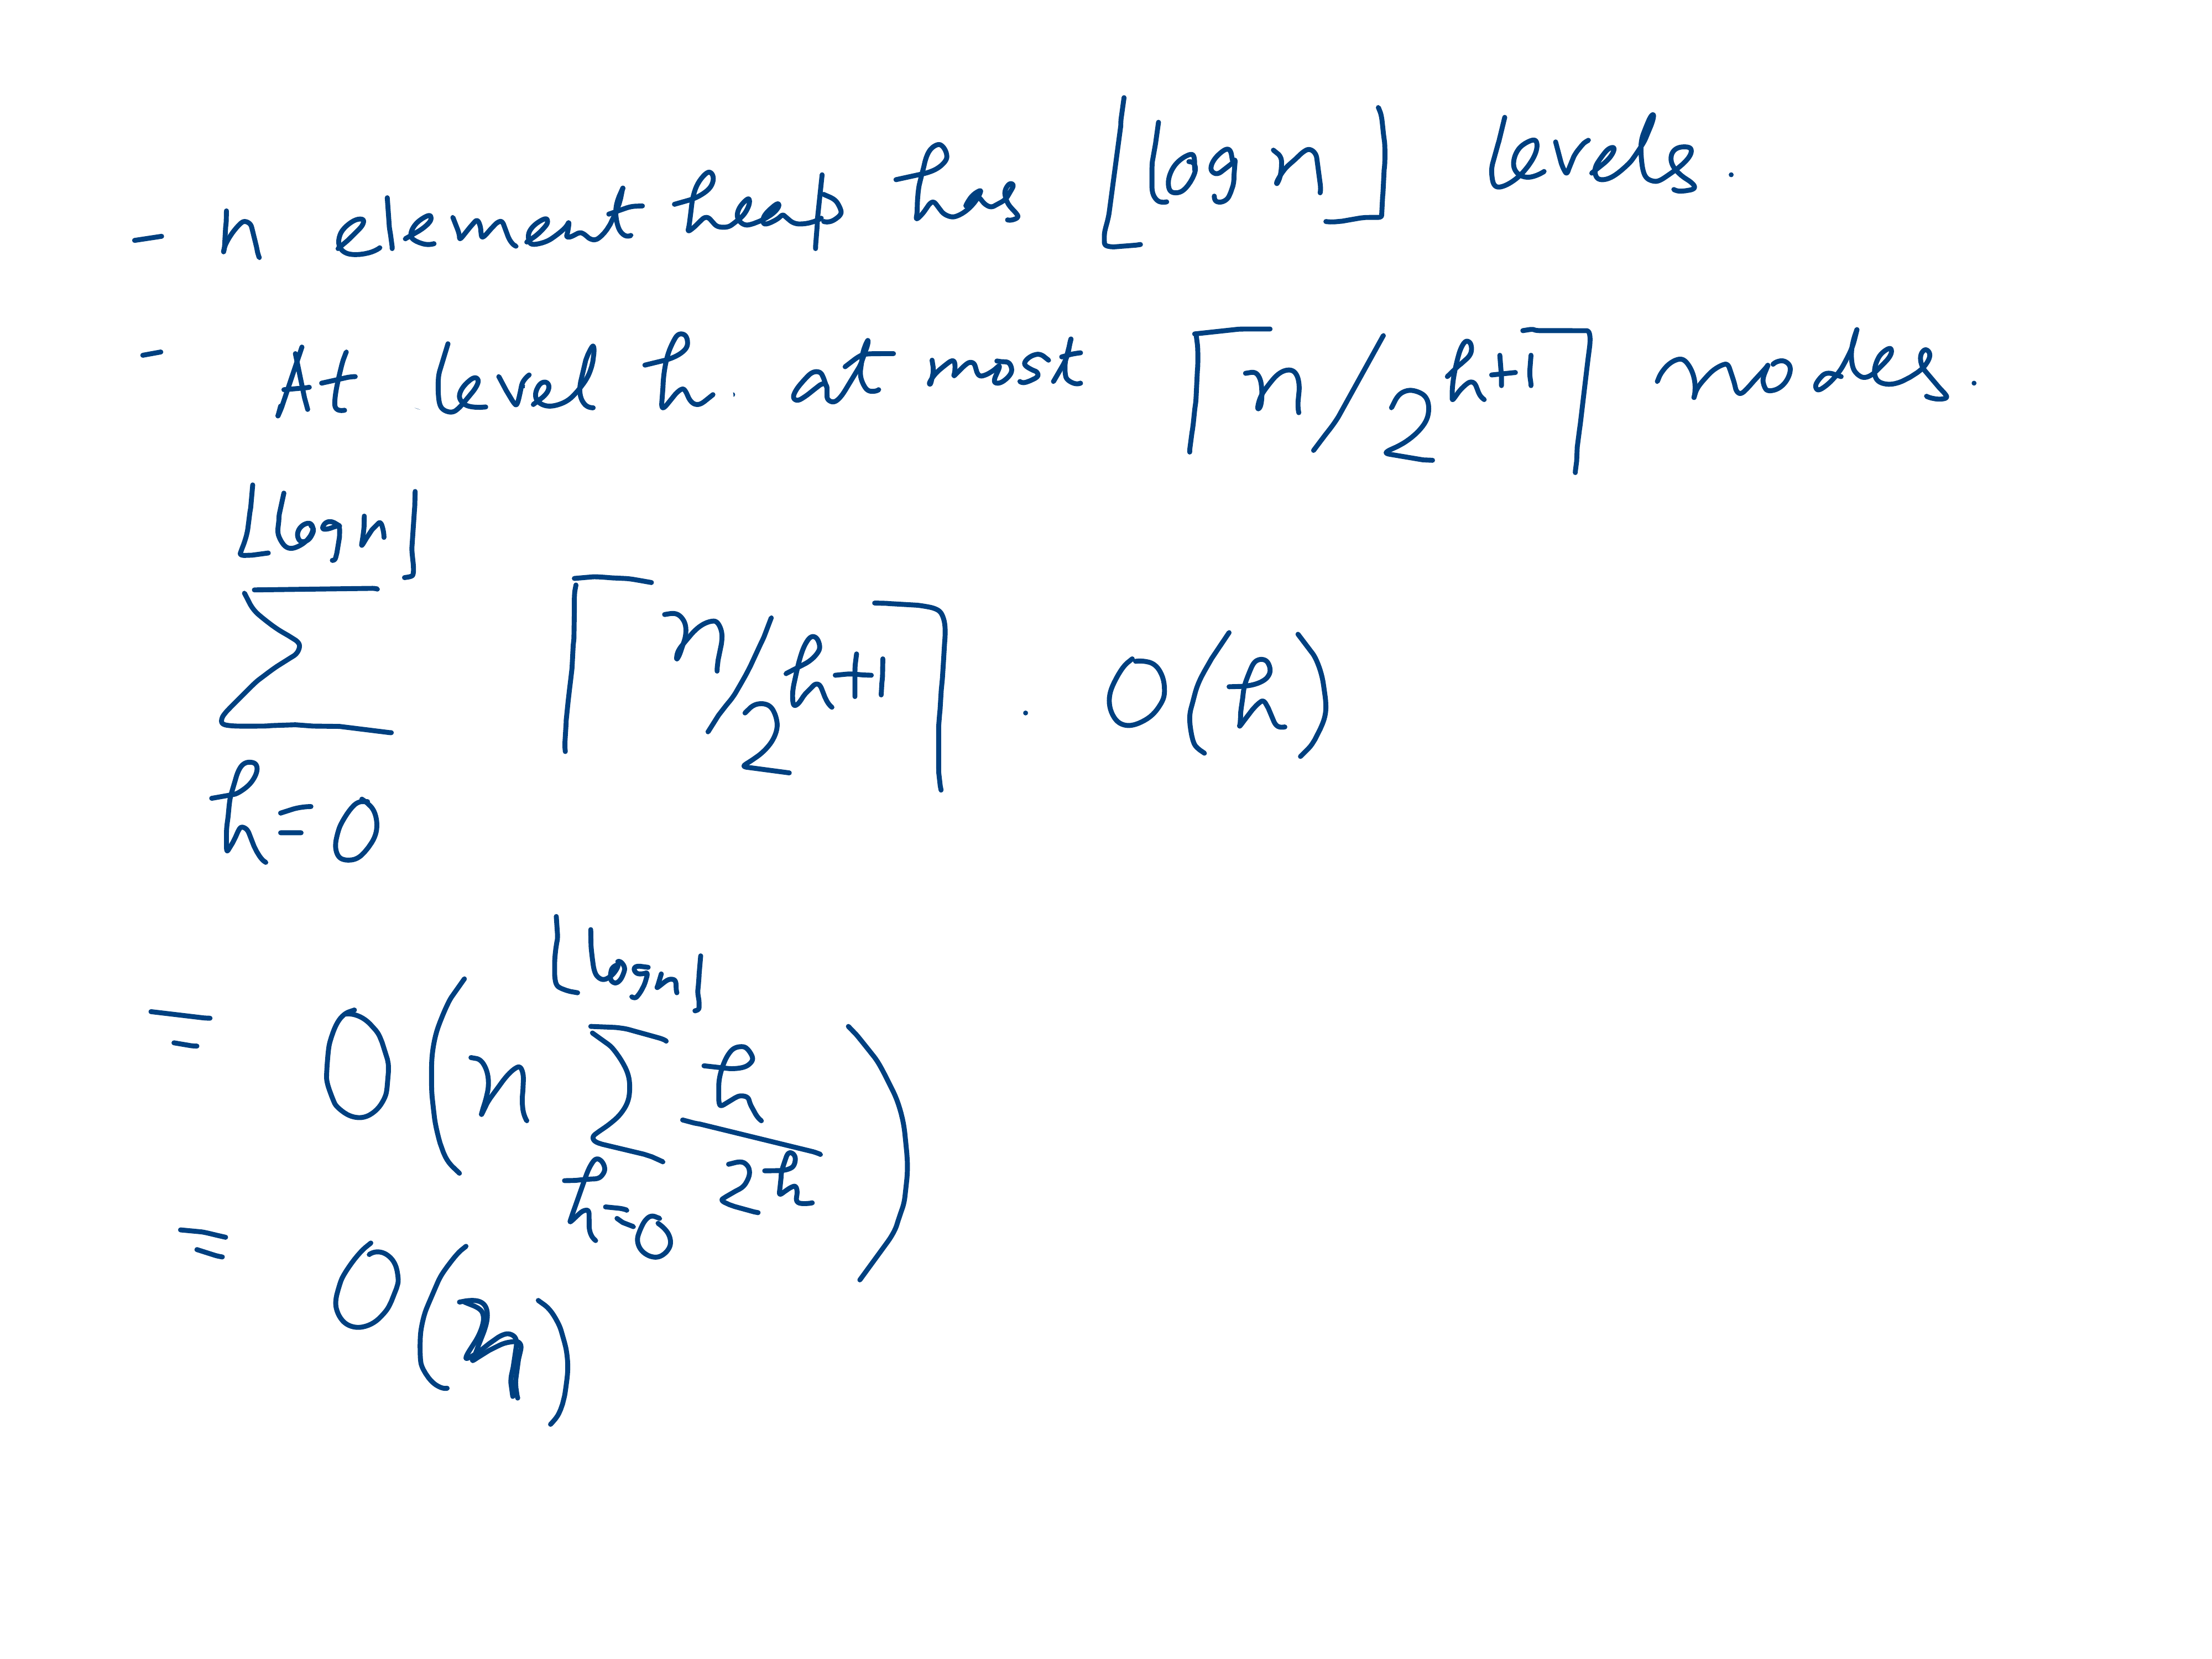 - n element heap has ⌊log n⌋ levels.
- At level h. at most ⌈n/2^{h+1}⌉ nodes.
∑_{h=0}^{⌊log n⌋} ⌈n/2^{h+1}⌉ . O(h)
= O(n ∑_{h=0}^{⌊log n⌋} h/2^h)
= O(n)